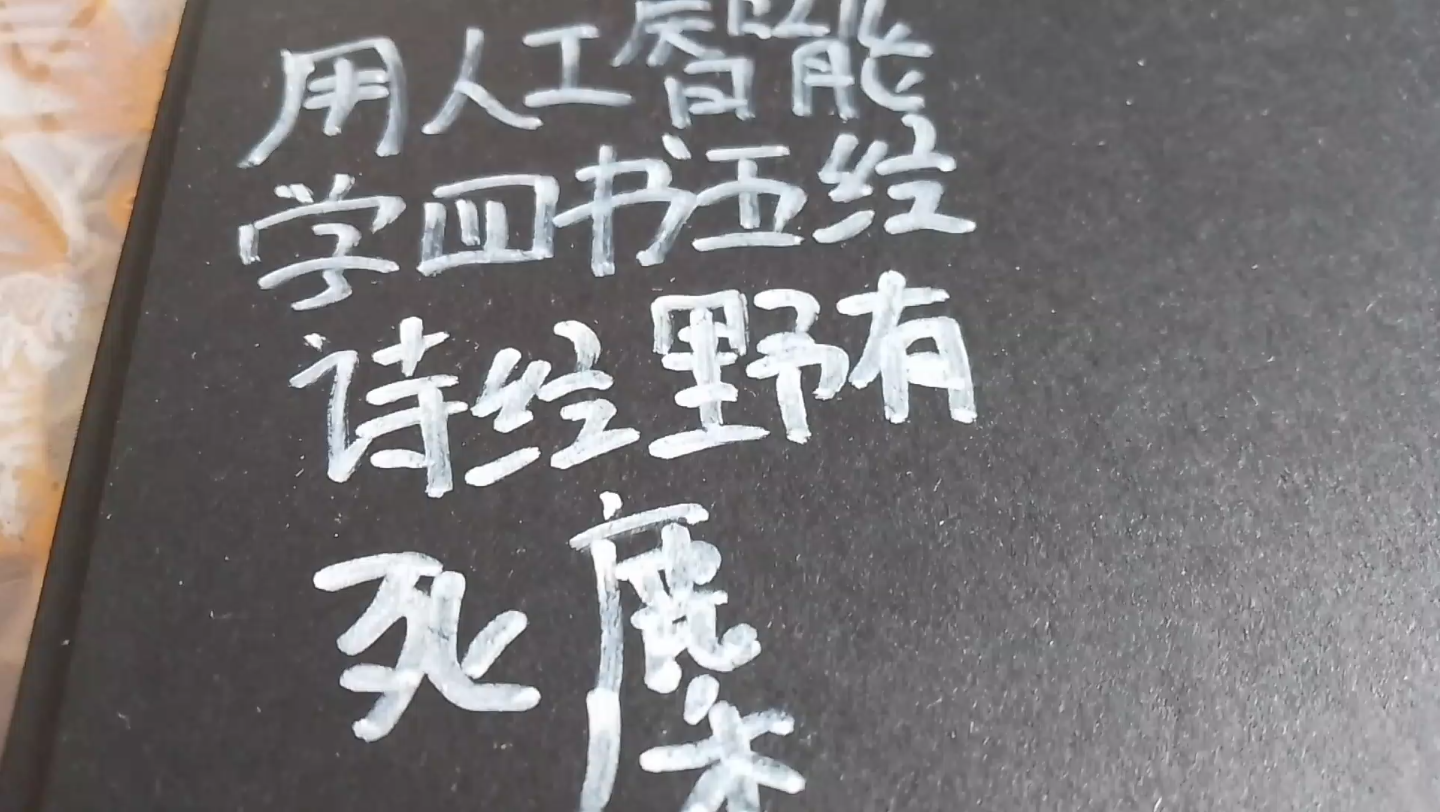 用人工智能
学四书五经
诗经野有
死麇